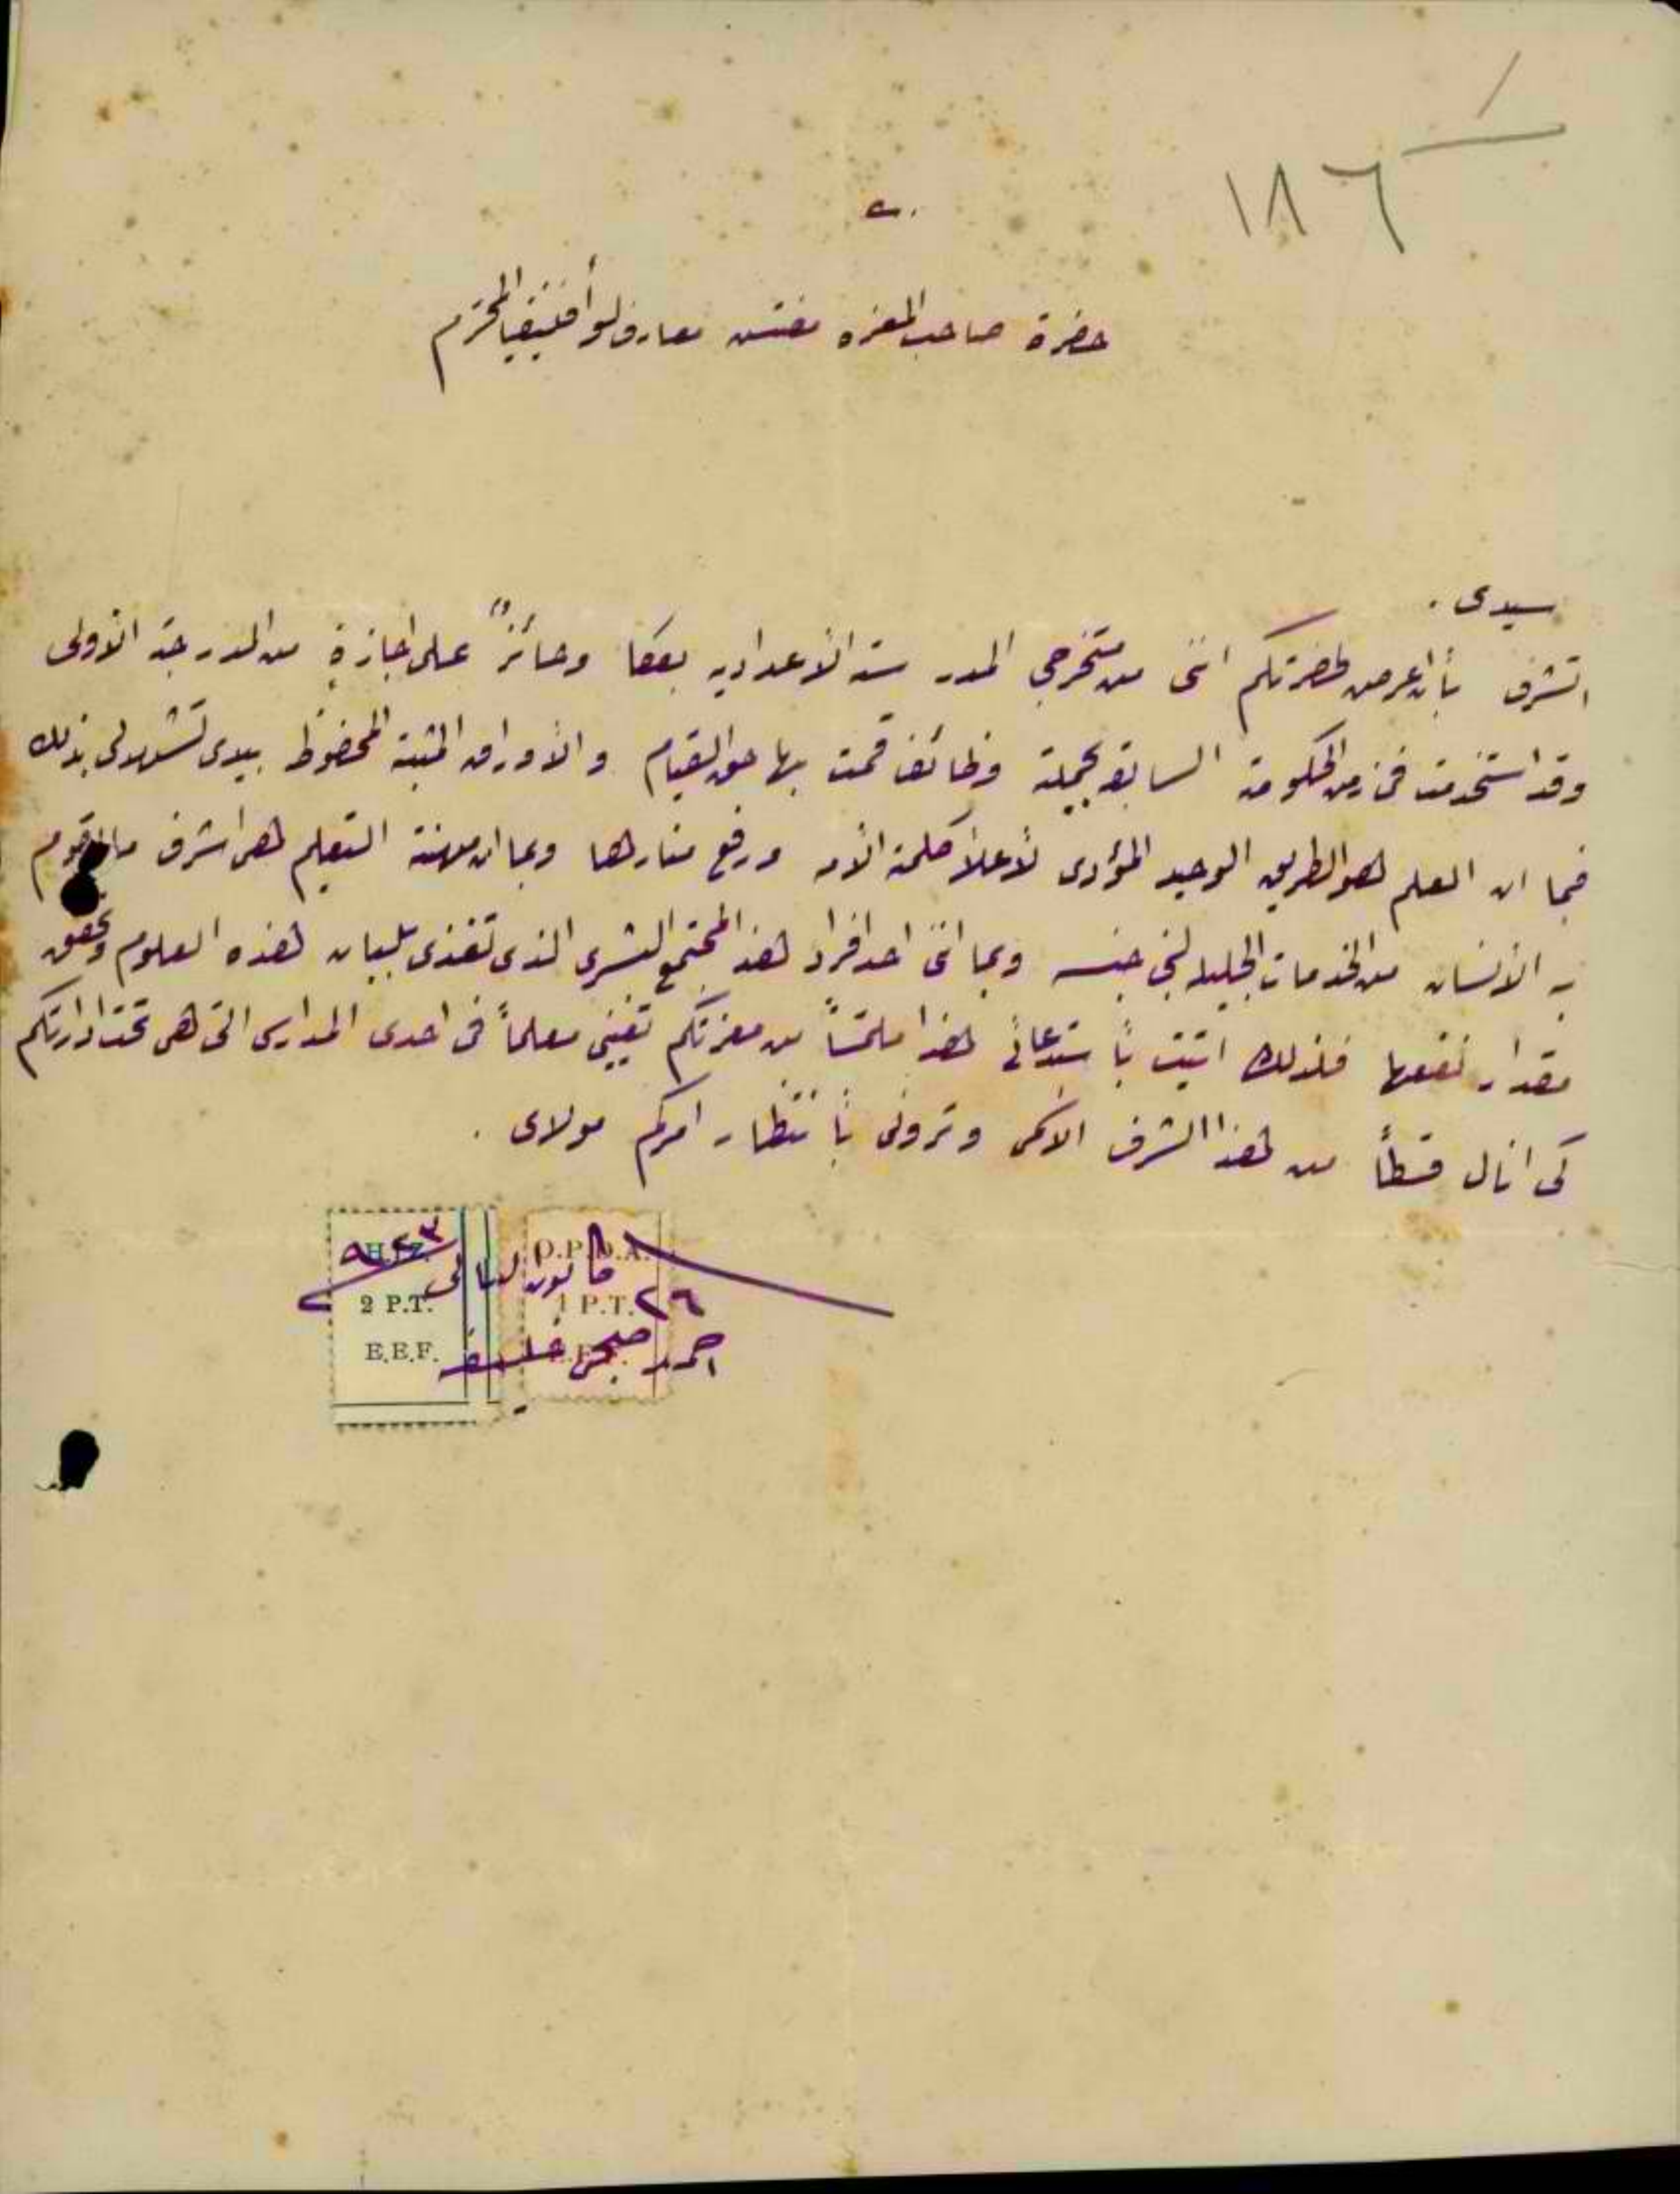 ١
١٨٦
حضرة صاحب المعزه مفتش معارف لوأ فنيقيا المحترم
سيدى .
اتشرف بأن اعرض لحضرتكم اننى من متخرجي المدرسة الأعداديه بعكا وحائزٌ على اجازةٍ من الدرجة الأولى
وقد استخدمت فى زمن الحكومة السابقه بجملة وظائف قمت بها حق القيام والأوراق المثبته المحفوظة بيدى تشهد لى بذلك
فبما ان العلم هو الطريق الوحيد المؤدى لأعلأ كلمة الأمه ورفع منارها وبما ان مهنة التعليم هى اشرف ما يقوم
به الأنسان من الخدمات الجليله لبنى جنسه وبما انى احد افراد هذا المجتمع البشرى الذى تغذى بلبان هذه العلوم وتحقق
مقدار نفعها فلذلك اتيت بأستدعائى هذا ملتمسًا من معزتكم تعيينى معلمًا فى احدى المدارس التى هى تحت ادارتكم
كى انال قسطًا من هذا الشرف الأسمى وترونى بأنتظار امركم مولاى .
٢٦ كانون الثانى ٩٢٣
احمد صبحى خليفه
O.P.D.A.
1 P.T.
2 P.T.
E.E.F.